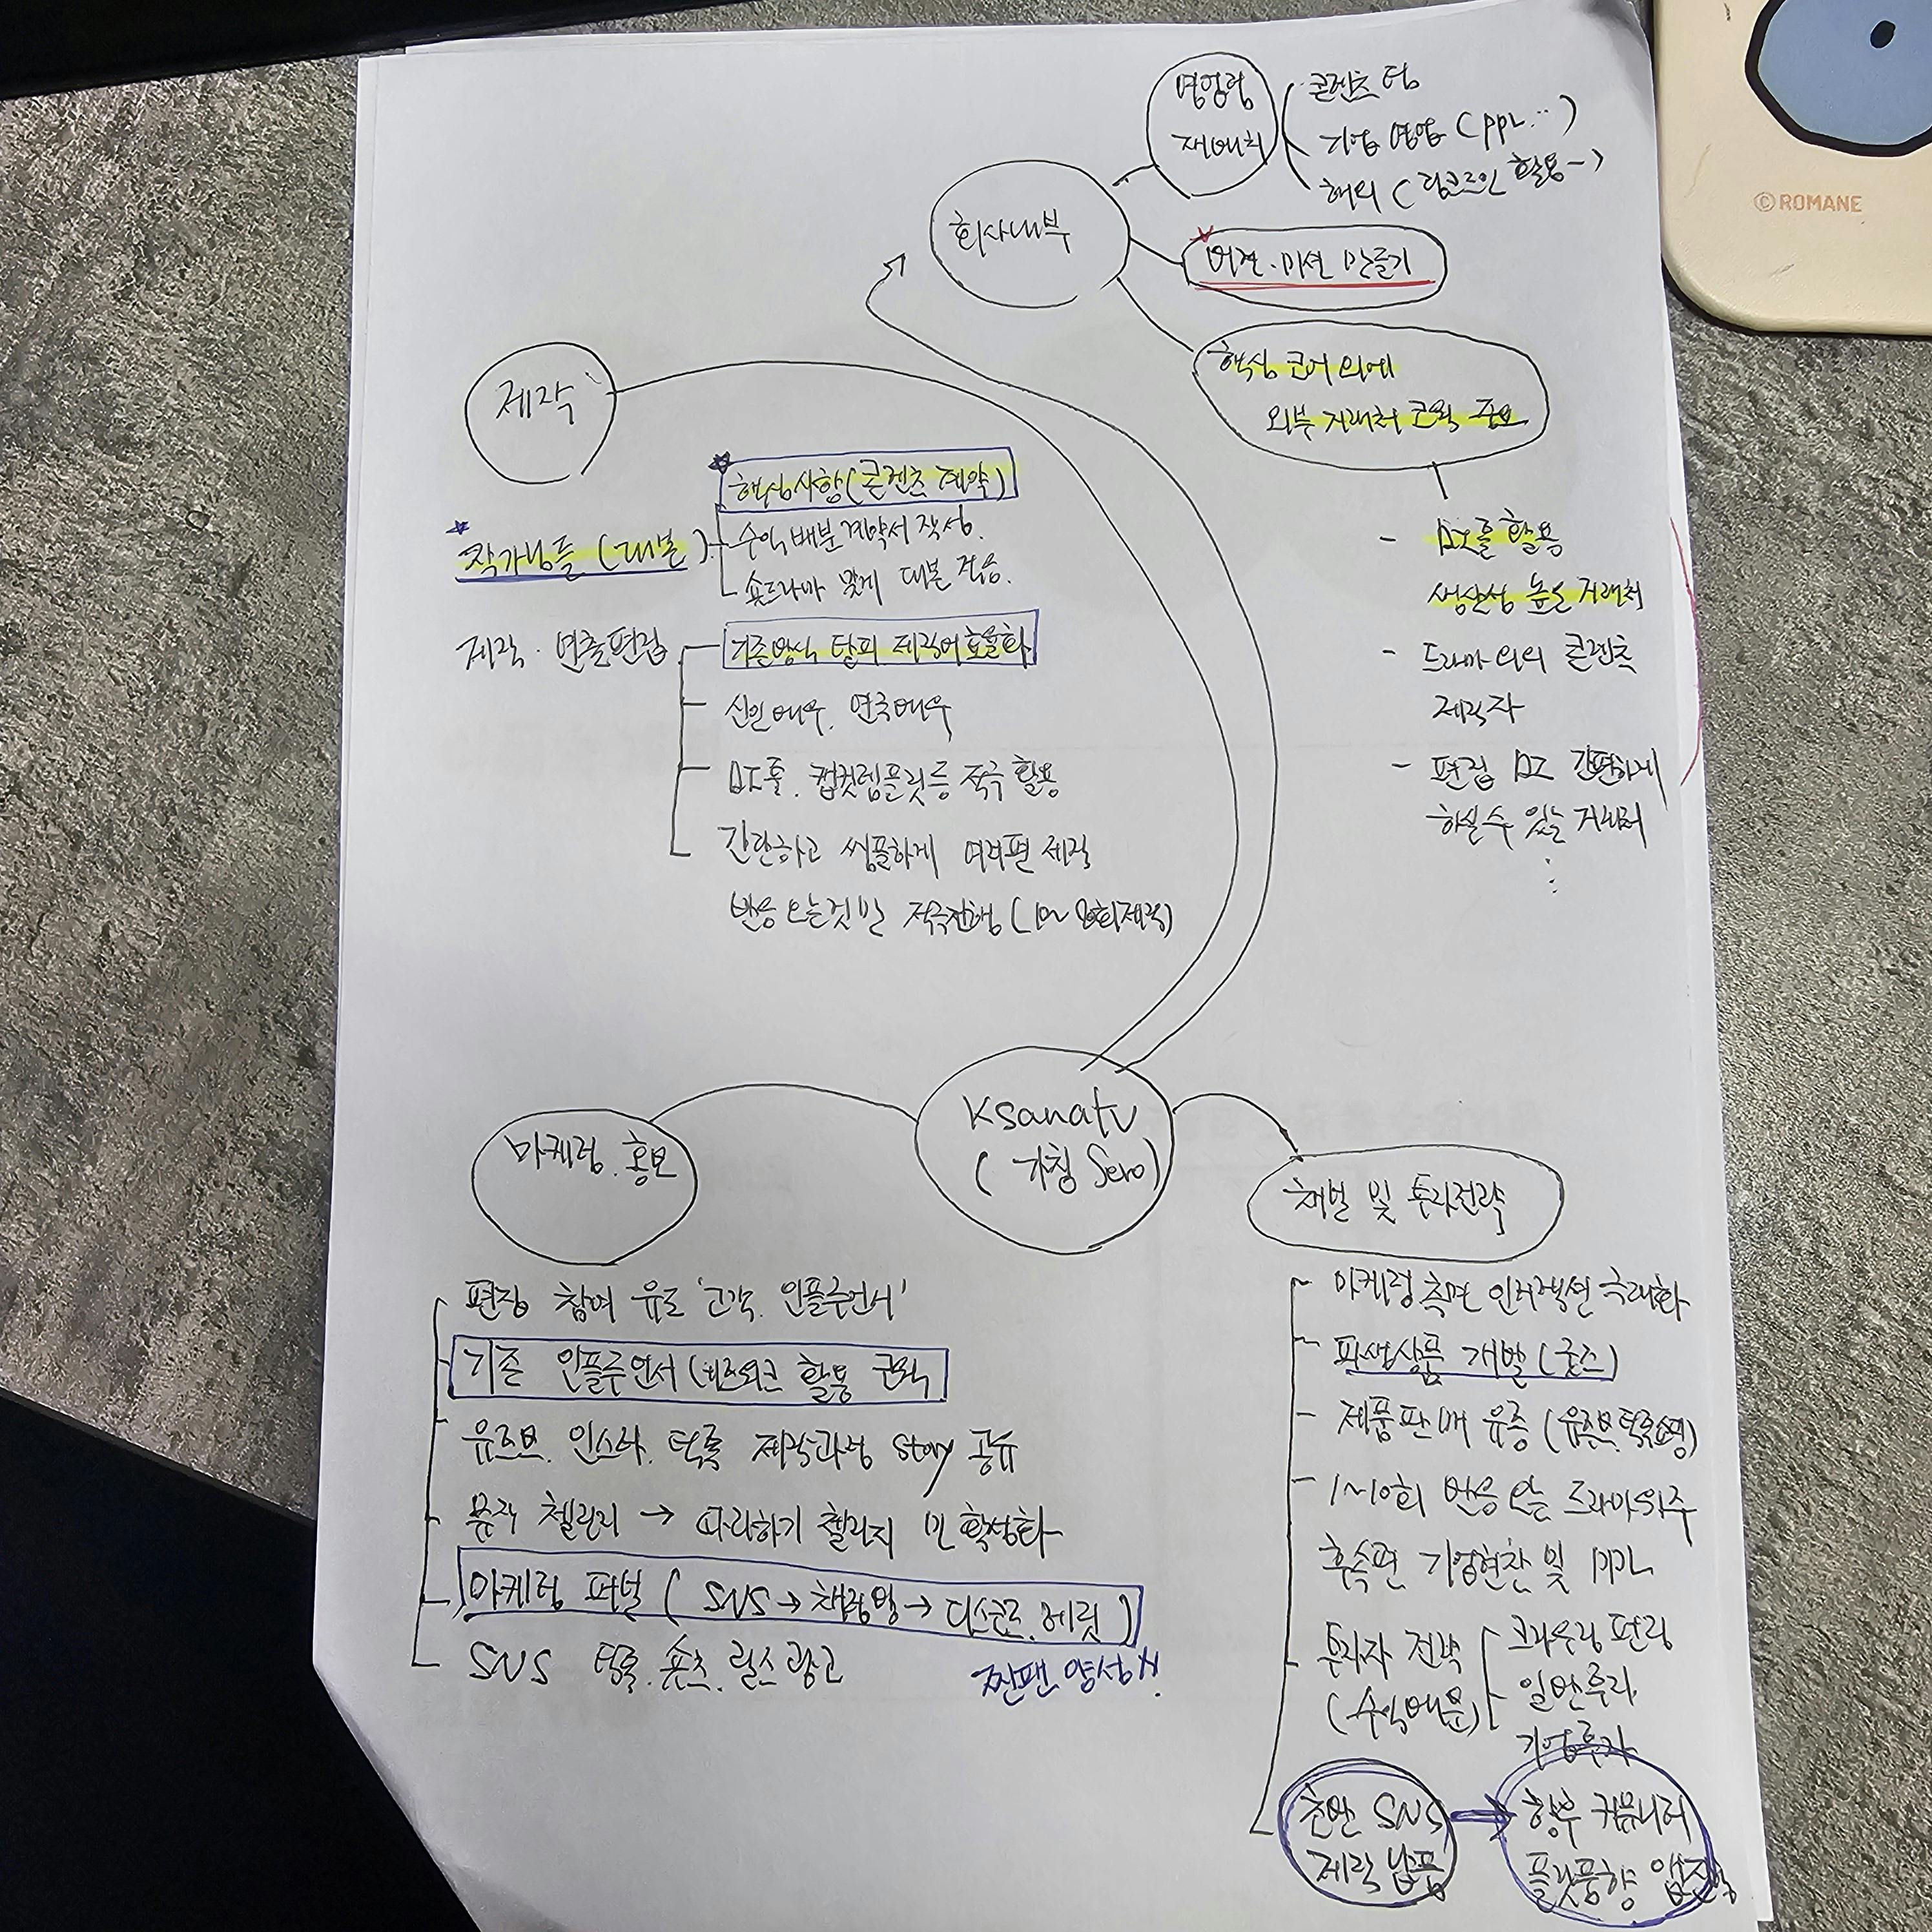 영업팀
재배치
콘텐츠 팀
기업 영업 (PPL..)
해외 ( 링크드인 활용~)
©ROMANE
회사내부
비젼.미션 만들기
핵심 코어 외에
외부 거래처 협력 중요
제작
핵심사항(콘텐츠 계약)
작가님들 (대본)
수익 배분 계약서 작성.
숏드라마 맞게 대본 적응.
제작. 연출편집
기존방식 탈피 제작비 효율화
신인배우. 연극배우
AI툴. 캡컷템플릿등 적극 활용
간단하고 씸플하게 여러편 제작
반응 오는것만 적극진행 (10~ 회제작)
- AI툴 활용
생산성 높은 거래처
- 드라마 외의 콘텐츠
제작자
- 편집 AI 간편하게
하실수 있는 거래처
Ksanatv
( 가칭 Sero)
마케팅. 홍보
채널 및 투자전략
편집 참여 유도 '고객. 인플루언서'
기존 인플루언서 네트워크 활용
유튜브. 인스타. 틱톡 제작과정 story 공유
뮤직 챌린지 → 따라하기 챌린지 밈 확장화
마케팅 퍼널 ( SNS → 채팅방 → 디스코드. 레딧 )
SNS 틱톡. 숏츠. 릴스 광고
찐팬 양성!!
마케팅 측면 인터렉션 극대화
- 파생상품 개발 (굿즈)
- 제품판매 유증 (유튜브.틱톡쇼핑)
1~10회 반응 있는 드라마 위주
후속편 기업협찬 및 PPL
투자자 전략
(수익배분)
크라우딩 펀딩
일반투자
기업투자
초반 SNS
제작 납품
향후 커뮤니티
플랫폼향